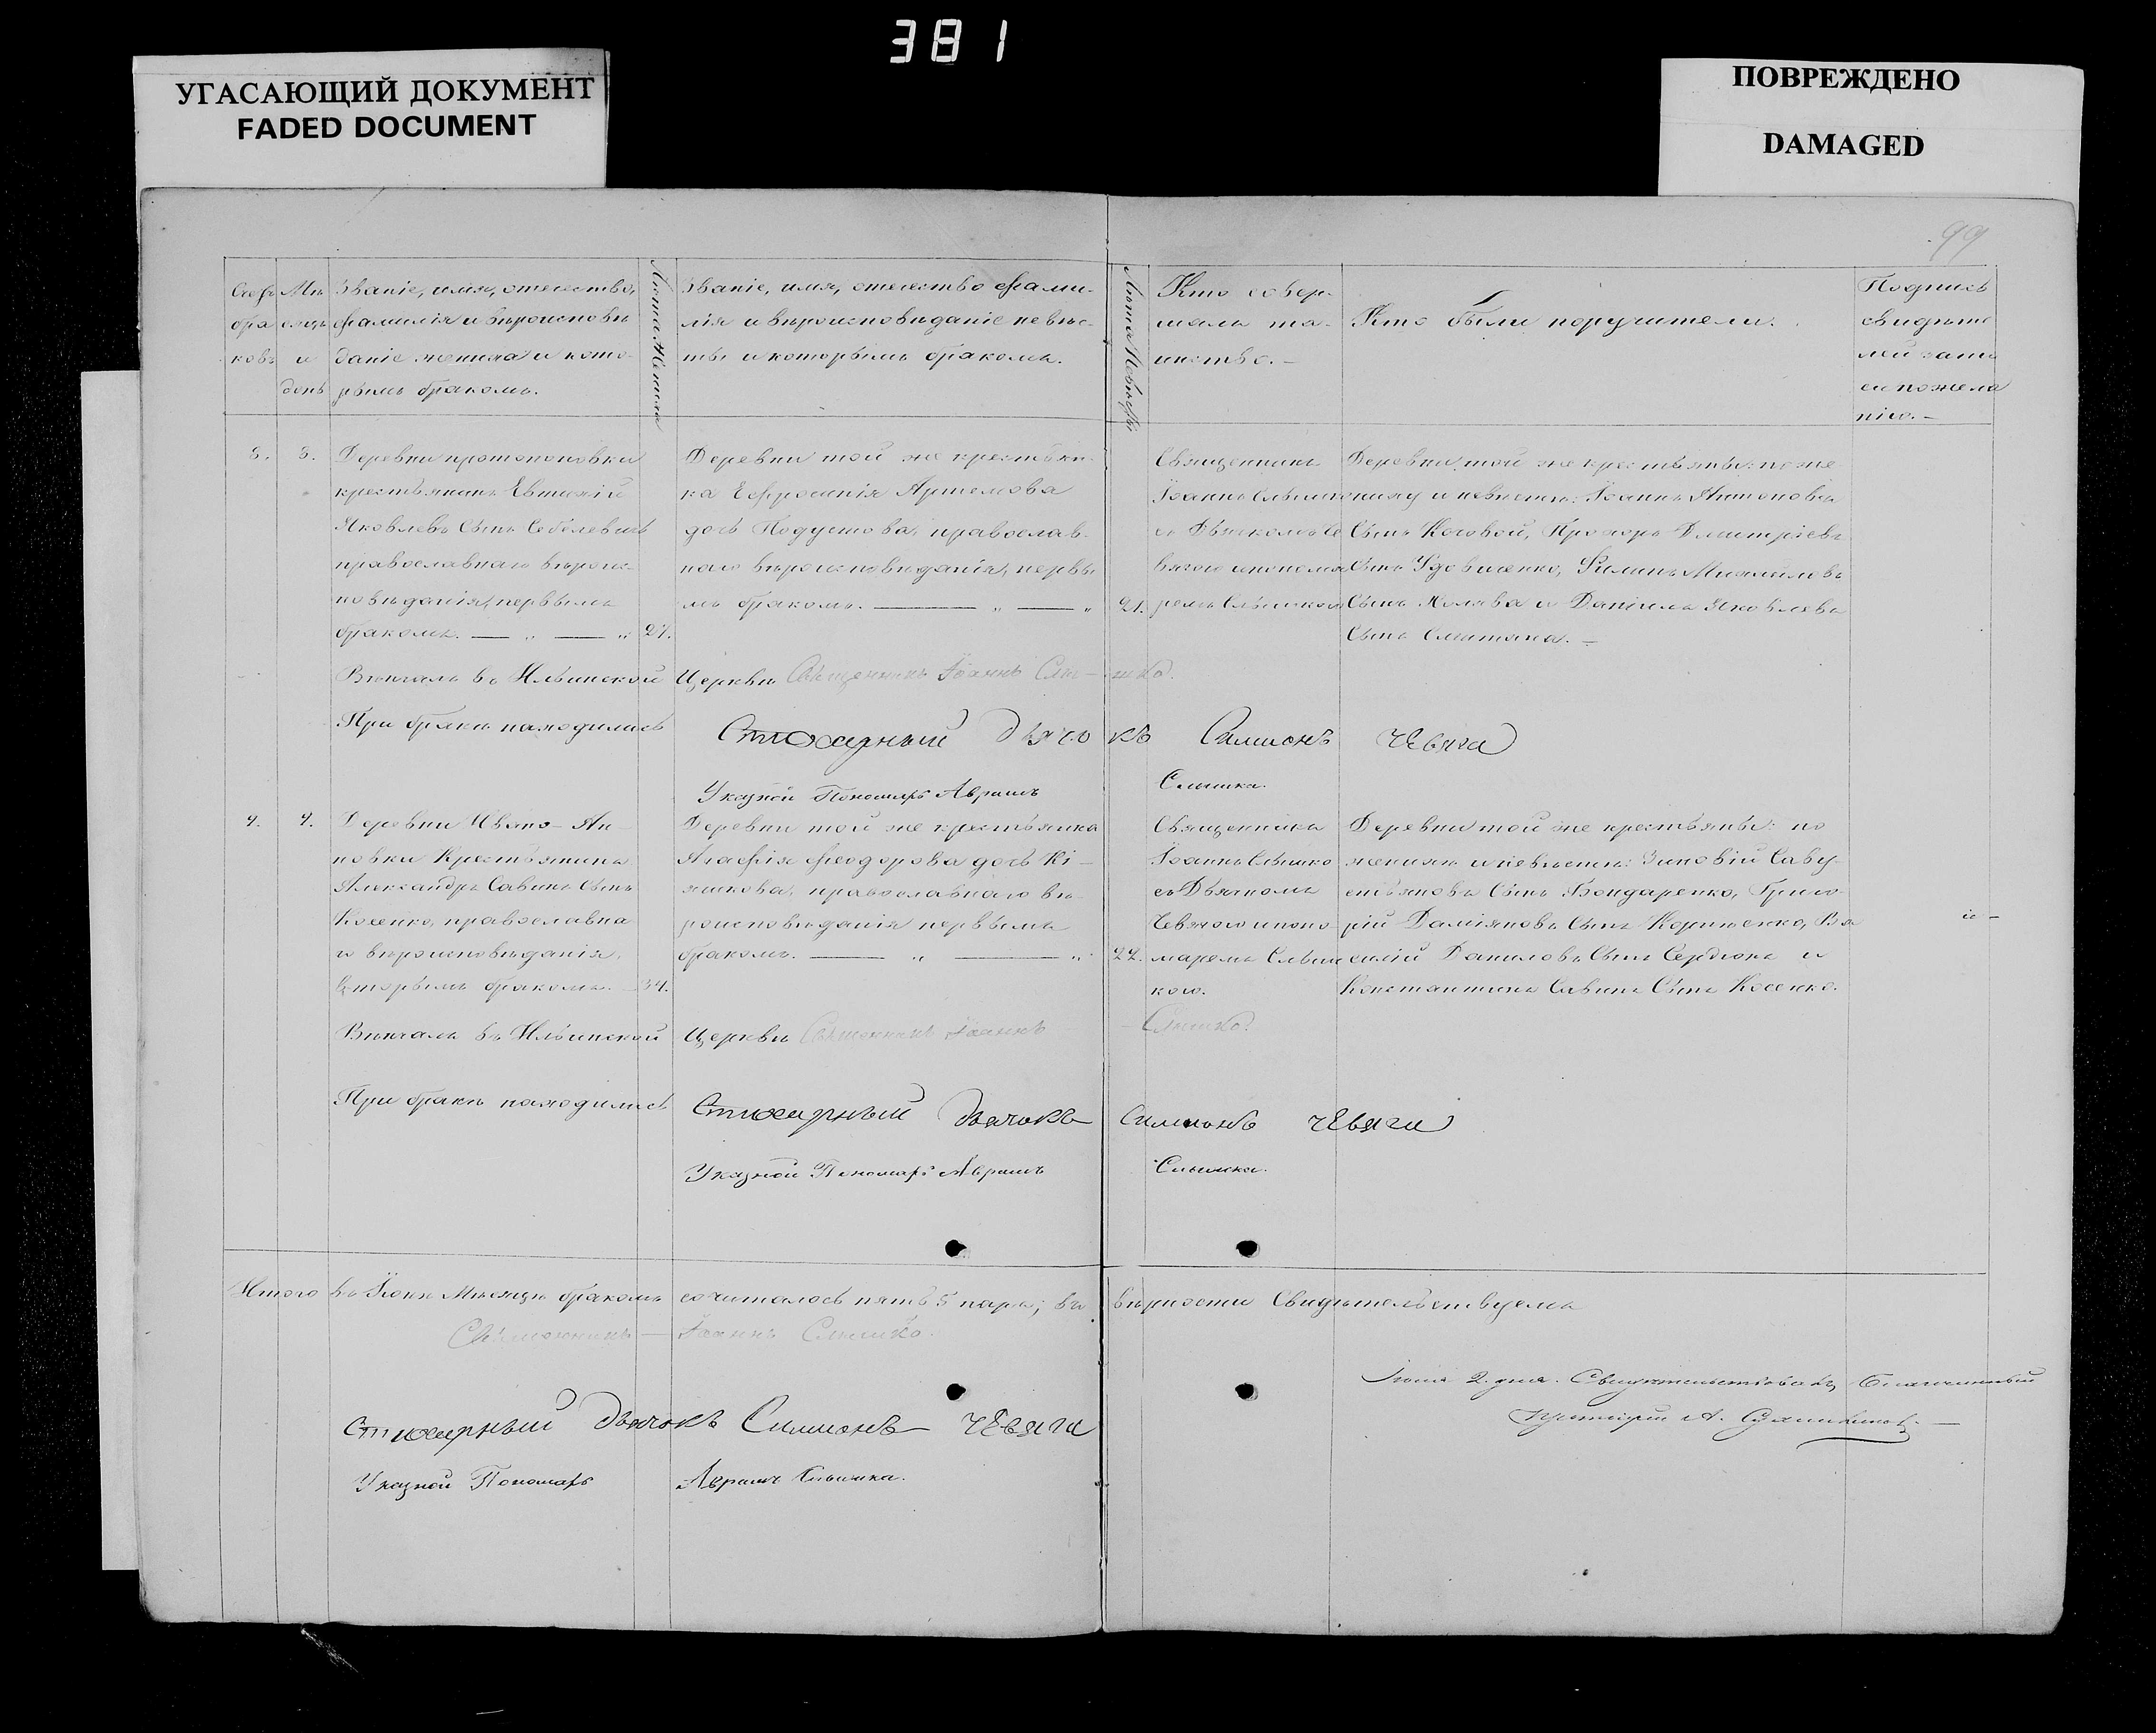 381
УГАСАЮЩИЙ ДОКУМЕНТ
FADED DOCUMENT
ПОВРЕЖДЕНО
DAMAGED
99
Счетъ браковъ
Мѣсяцъ и день
Званіе, имя, отечество,
фамилія и вѣроисповѣ
даніе жениха и кото-
рымъ бракомъ.
Лѣта жениха
Званіе, имя, отечество фами-
лія и вѣроисповѣданіе невѣс-
ты и которымъ бракомъ.
Лѣта невѣсты
Кто совер-
шалъ та-
инство.-
Кто были поручители.
Подпись
свидѣте
лей запи
си по жела
нію.-
8. 8.
Деревни Протопоповки
крестьянинъ Евтихій
Яковлевъ Сынъ
православнаго вѣроис-
повѣданія, первымъ
бракомъ. 27.
Деревни той же крестьян-
ка Ефросинія Артемова
дочь Подустова, православ-
наго вѣроисповѣданія, первы
мъ бракомъ. 21.
Священникъ
Іоаннъ Слышко
съ Дьячкомъ Че
вягою и пономя
ремъ Слышкою
Деревни той же крестьяны: по же
ниху и невѣсты: Іоаннъ Антоновъ
Сынъ Коговой, Прохоръ Дмитріевъ
Сынъ Удовиченко, Филипъ Михайловъ
Сынъ Халява и Даніилъ Яковлевъ
Сынъ Сметана.-
Вѣнчалъ въ Ильинской Церкви Священникъ Іоаннъ Слышко.
При бракѣ находились Стихарный Дьячокъ Симионъ Чевяга
Указной Пономарь Аврамъ Слышка.
9. 9.
Деревни Ивано-Ан-
новки Крестьянинъ
Александръ Савинъ Сынъ
Косенко, православна
го вѣроисповѣданія,
вторымъ бракомъ. 34.
Деревни той же крестьянка
Агафія Феодорова дочь Кі-
яшкова, православнаго вѣ-
роисповѣданія первымъ
бракомъ. 22.
Священникъ
Іоаннъ Слышко
съ Дьячкомъ
Чевягою и поно-
маремъ Слыш
кою.
Деревни той же крестьяны: по
жениху и невѣсты: Зиновій Саву-
стьяновъ Сынъ Бондаренко, Григо-
рій Даміяновъ Сынъ Корніенко, Ва
силій Даниловъ Сынъ Сердюкъ и
Константинъ Савинъ Сынъ Косенко.
Вѣнчалъ въ Ильинской Церкви Священникъ Іоаннъ Слышко.
При бракѣ находились Стихарный Дьячокъ Симионъ Чевяга
Указной Пономарь Аврамъ Слышка.
Итого въ Іюнѣ Мѣсяцѣ бракомъ сочиталось пять 5 паръ; въ вѣрности Свидѣтельствуемъ
Священникъ Іоаннъ Слышко.
Стихарный Дьячокъ Симионъ Чевяга
Указной Пономарь Аврамъ Слышка.
Іюля 2. дня. Свидѣтельствовалъ Благочинный
Протоіерей А.